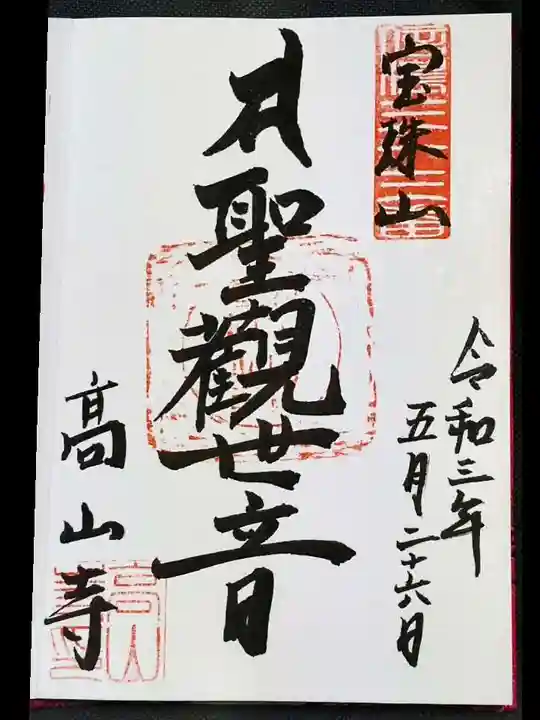 宝珠山
令和三年
五月二十六日
聖觀世音
高山寺